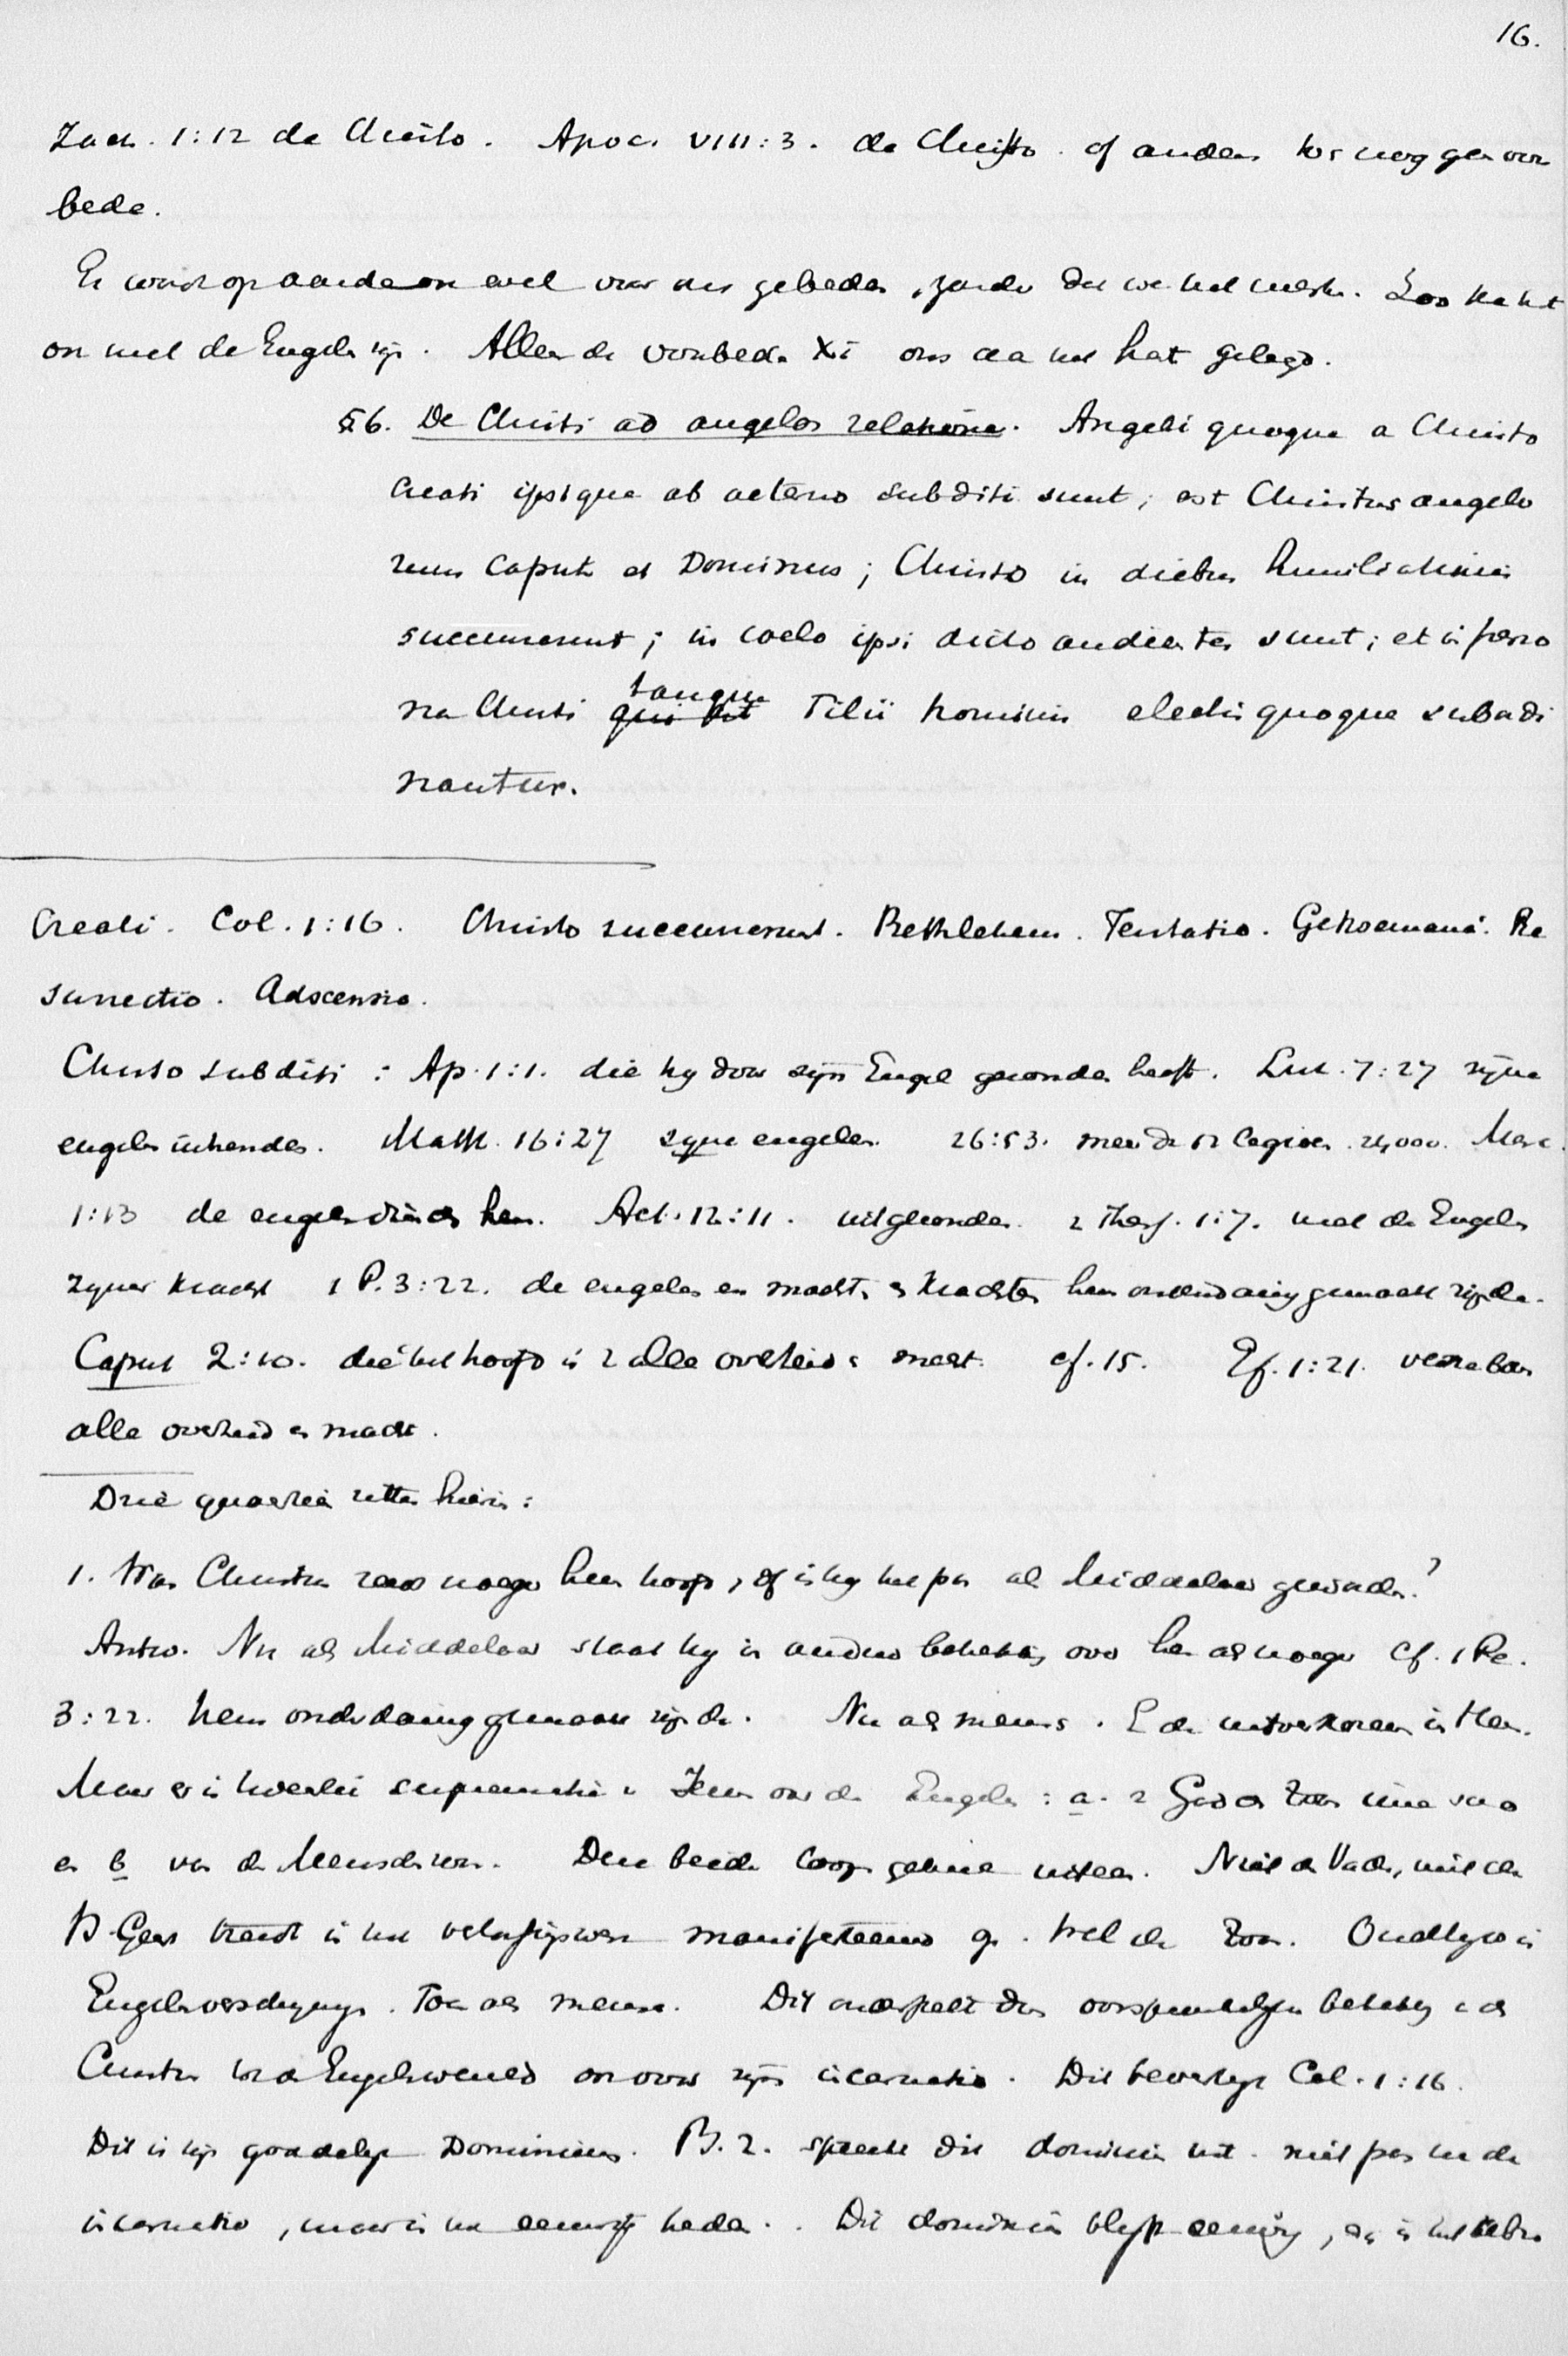 16.
Zach. 1:12 de Christo. Apoc. VIII:3. de Christo. of anders toe nog gen voor
bede.
Er wordt op aarde ook wel voor ons gebeden, zonder dat we het merken. Zoo kan het
ook met de Engelen zijn. Alleen de voorbede Xi ons aan het hart gelegd.
§6. De Christi ad angelos relatione. Angeli quoque a Christo
creati ipsique ab aeterno subditi sunt; est Christus angelo
rum caput et Dominus; Christo in diebus humiliationis
succurrerunt; in coelo ipsi dicto audientes sunt; et in perso
na Christi tanquam Filii hominis electis quoque subordi
nantur.
Creati. Col. 1:16. Christo succurrerunt. Bethlehem. Tentatio. Gethsemané. Re
surrectio. Adscensio.
Christo subditi: Ap. 1:1. die hy door zijn Engel gezonden heeft. Luc. 7:27 zijne
engelen uitzenden. Matth. 16:27 zijne engelen. 26:53. meer dan 12 legioen. 24,000. Marc.
1:13 de engelen dienden hem. Act. 12:11. uitgezonden. 2 Thess. 1:7. met de Engelen
zijner kracht 1 P. 3:22. de engelen en machten en krachten hem onderdanig gemaakt zijnde.
Caput 2:10. die het hoofd is v alle overheid en macht. cf. 15. Ef. 1:21. verre boven
alle overheid en macht.
Drie quaestien zitten hierin:
1. Was Christus reeds vroeger hun hoofd, of is hy het pas als Middelaar geworden?
Antw. Nu als Middelaar staat hy in andere betrekking over hen als vroeger cf. 1 Pe.
3:22. hem onderdanig gemaakt zijnde. Nu als mensch. En de uitverkoren in Hem.
Maar er is tweeërlei suprematie v Jezus over de Engelen: a. v God den Zoon
en b van de Menschenzoon. Deze beide loopen geheel uiteen. Niet de Vader, niet de
H. Geest treedt in het verlossingswerk manifesteerend op. Wel de Zoon. Oudtyds in
Engelenverschijningen. Toen als mensch. Dit onderstelt een oorspronkelijke betrekking v d
Christus tot de Engelenwereld ook voor zijn incarnatie. Dit bevestigt Col. 1:16.
Dit is zijn goddelijk Dominium. Ps. 2. spreekt dit dominium uit. niet pas in de
incarnatie, maar in het eeuwig heden. Dit dominium blijft eeuwig, en is het